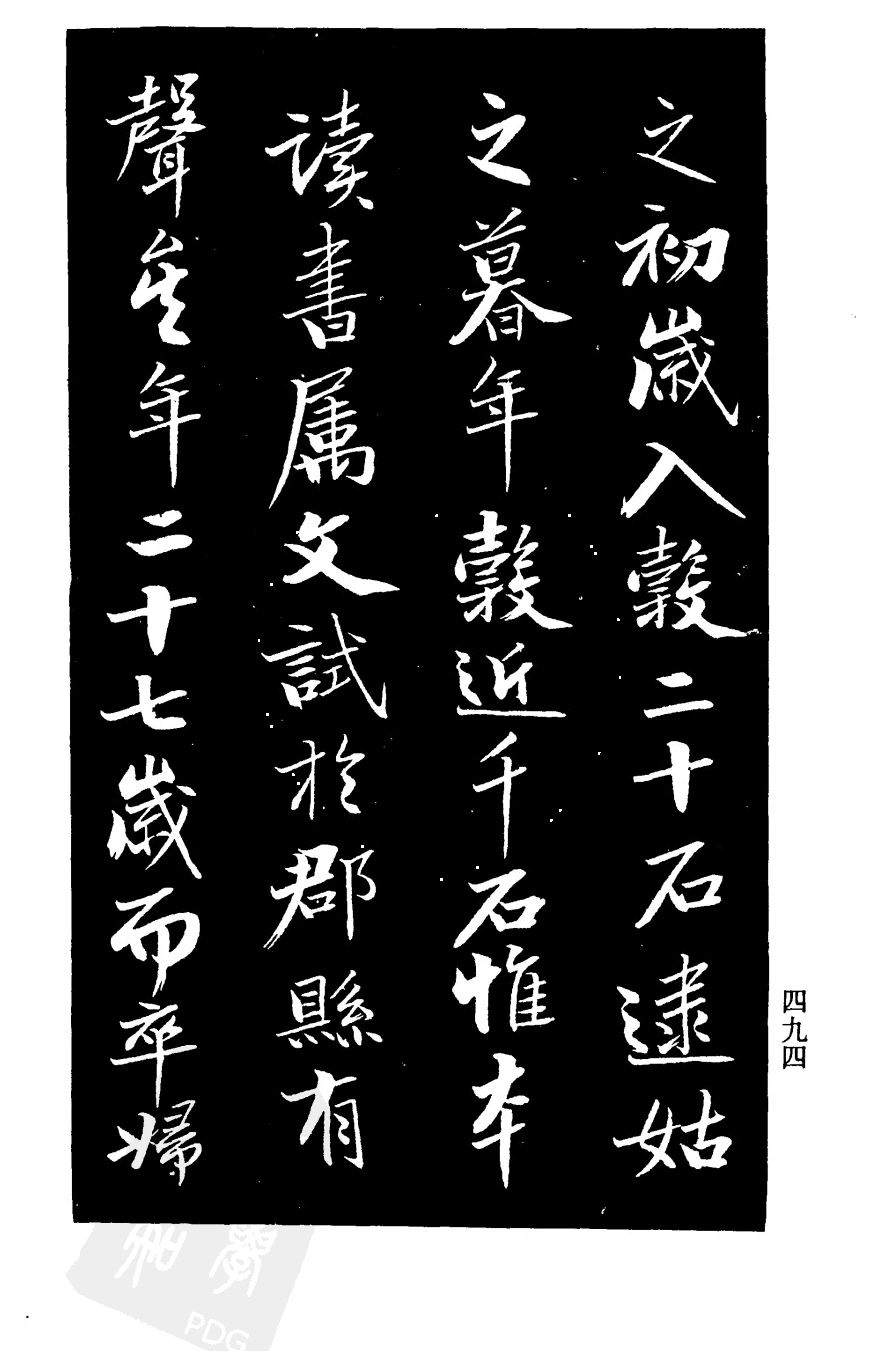 之初歲入穀二十石逮姑
之暮年穀近千石惟本
讀書属文試於郡縣有
聲矣年二十七歲而卒婦
四九四
PDG